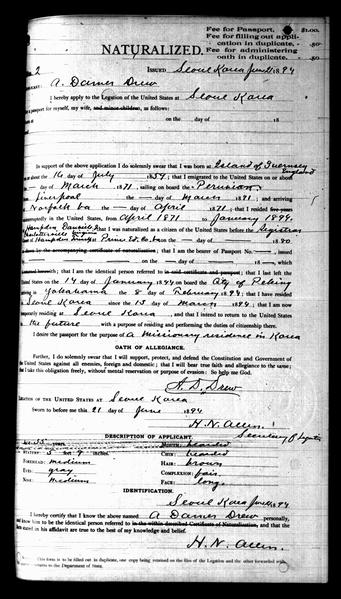 Fee for Passport, $1.00
Fee for filling out application in duplicate, .50
Fee for administering oath in duplicate, .50
NATURALIZED.
2 ISSUED Seoul Korea June 21 1894
A. Dames Drew
I hereby apply to the Legation of the United States at Seoul Korea
a passport for myself, my wife, and minor children, as follows
on the day of 18
on the day of 18
In support of the above application I do solemnly swear that I was born at Island of Guernsey England
about the 16 day of July 1859; that I emigrated to the United States on or about
the — day of March 1871 sailing on board the Peruvian
Liverpool on the — day of March 1871; arriving
Norfolk Va on the — day of April 1871; that I resided five years
uninterruptedly in the United States, from April 1871 to January 1894,
that I was naturalized as a citizen of the United States before the Registrar
on the — day of 1880
by the accompanying certificate of naturalization; that I am the bearer of Passport No.
day of 18—,
that I am the identical person referred to in said certificate and passport; that I left the
United States on the 14 day of January 1894 on board City of Peking
Yokohama the 8 day of February 1894; that I have resided
Seoul Korea since the 13 March 1894; that I am
temporarily residing at Seoul Korea, and that I intend to return to the United States
the future with a purpose of residing and performing the duties of citizenship there.
I desire the passport for the purpose of a missionary residence in Korea
OATH OF ALLEGIANCE.
Further, I do solemnly swear that I will support, protect, and defend the Constitution and Government of
United States against all enemies, foreign and domestic; that I will bear true faith and allegiance to the same;
I take this obligation freely, without mental reservation or purpose of evasion: So help me God.
A. D. Drew
LEGATION OF THE UNITED STATES AT Seoul Korea
Sworn to before me this 21 day of June 1894
H. N. Allen.
Secretary of Legation
DESCRIPTION OF APPLICANT.
years MOUTH: bearded
STATURE: 5 feet 9 inches CHIN: bearded
FOREHEAD: medium HAIR: brown
EYES: gray COMPLEXION: fair
NOSE: medium FACE: long.
IDENTIFICATION.
Seoul Korea June 21 1894
I hereby certify that I know the above named A Dames Drew personally,
and know him to be the identical person referred to in the within described Certificate of Naturalization, and that the
facts stated in his affidavit are true to the best of my knowledge and belief.
H. N. Allen.
This form is to be filled out in duplicate, one copy being retained on the files of the Legation and the other forwarded
to the Department of State.